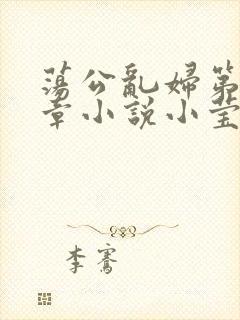 蕩公亂婦第
章小說小莹
李騫